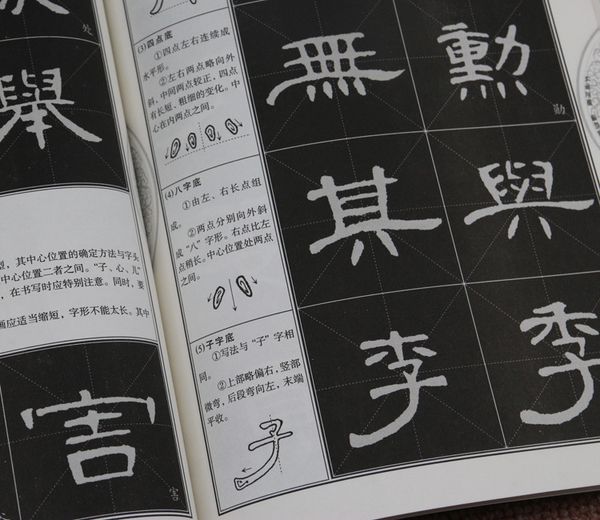 舉
型,其中心位置的确定方法与字头
中心位置二者之间。“子、心、儿”
,在书写时应特别注意。同时,要
画应适当缩短,字形不能太长。其中
害
害
(3)四点底
①四点左右连续成
水平形。
②左右两点略向外
斜,中间两点较正,四点
有长短、粗细的变化。中
心在内两点之间。
(4)八字底
①由左、右长点组
成。
②两点分别向外斜
成“八”字形。右点比左
点稍长。中心位置处两点
之间。
(5)子字底
①写法与“子”字相
同。
②上部略偏右,竖部
微弯,后段弯向左,末端
平收。
子
無 勳
勋
其 與
李 季